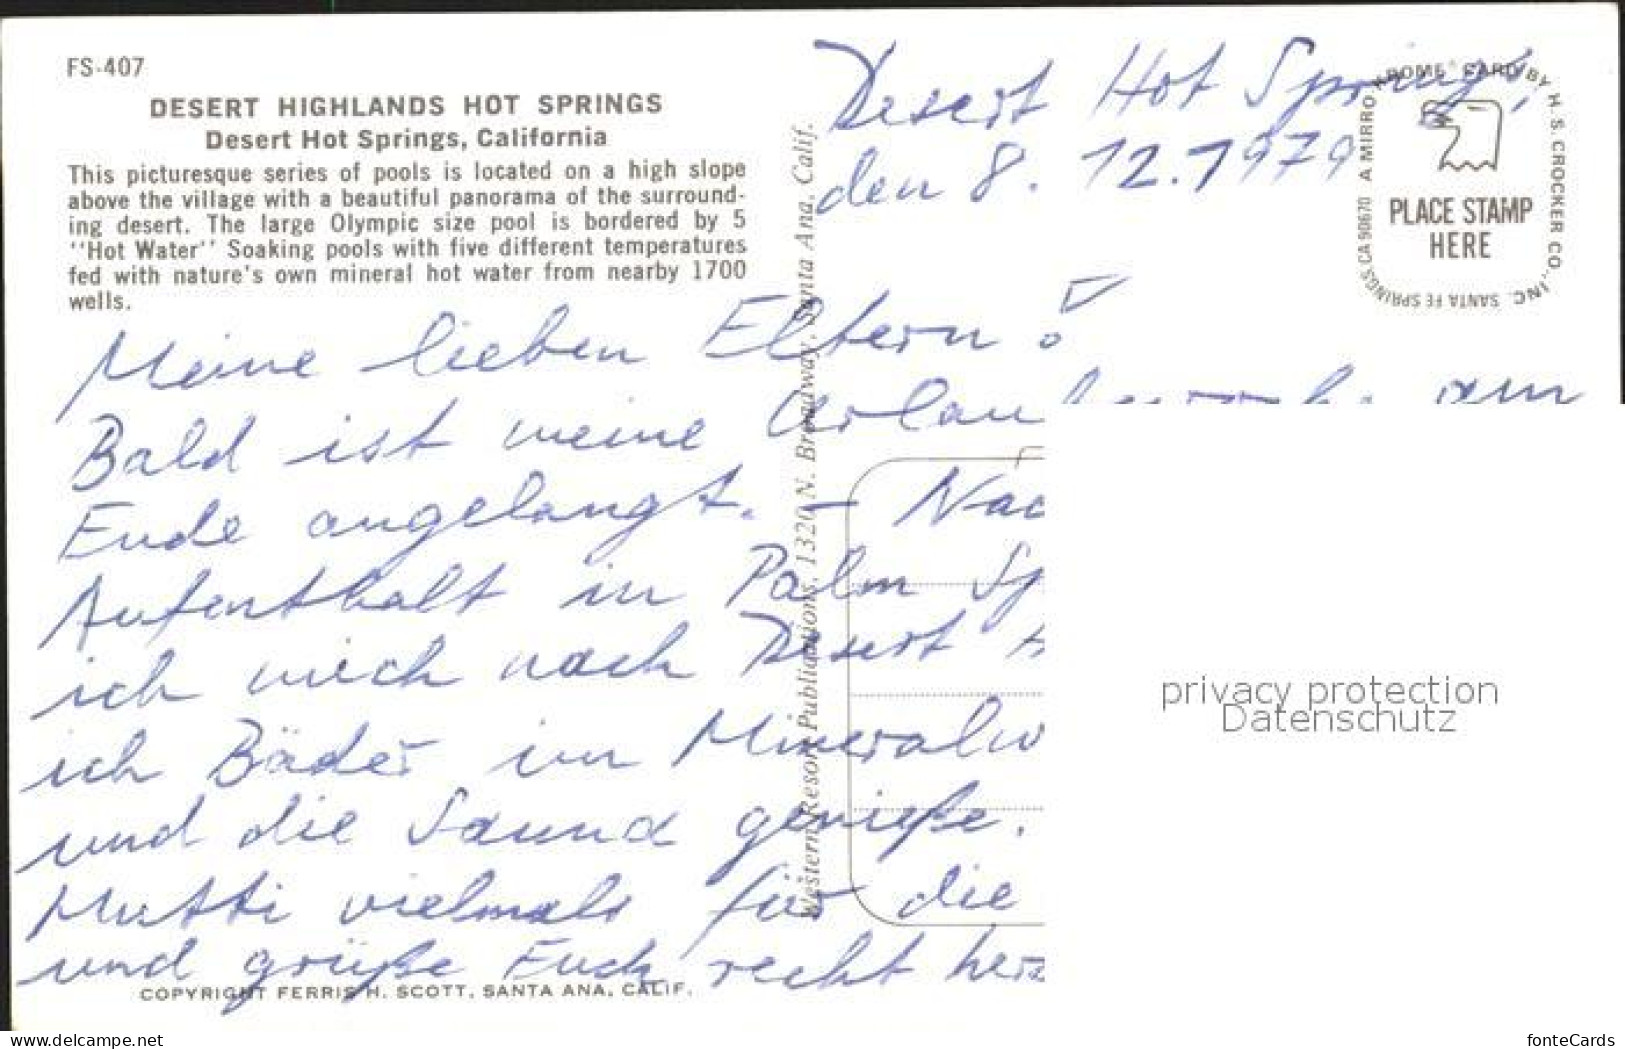 FS-407
DESERT HIGHLANDS HOT SPRINGS
Desert Hot Springs, California
This picturesque series of pools is located on a high slope
above the village with a beautiful panorama of the surround-
ing desert. The large Olympic size pool is bordered by 5
"Hot Water" Soaking pools with five different temperatures
fed with nature's own mineral hot water from nearby 1700
wells.
Desert Hot Springs,
den 8. 12. 1979
A MIRRO-KROME® CARD BY H. S. CROCKER CO., INC. SANTA FE SPRINGS, CA 90670
PLACE STAMP
HERE
Meine lieben Eltern!
Bald ist meine am
Ende angelangt. - Nac
Aufenthalt in Palm Sp
ich mich nach Desert H
ich Bäder im Mineralw
und die Sauna genieße.
Mutti vielmals für die
und grüße Euch recht herz
COPYRIGHT FERRIS H. SCOTT, SANTA ANA, CALIF.
Western Resort Publications, 1320 N. Broadway, Santa Ana, Calif.
privacy protection
Datenschutz
www.delcampe.net
fonteCards